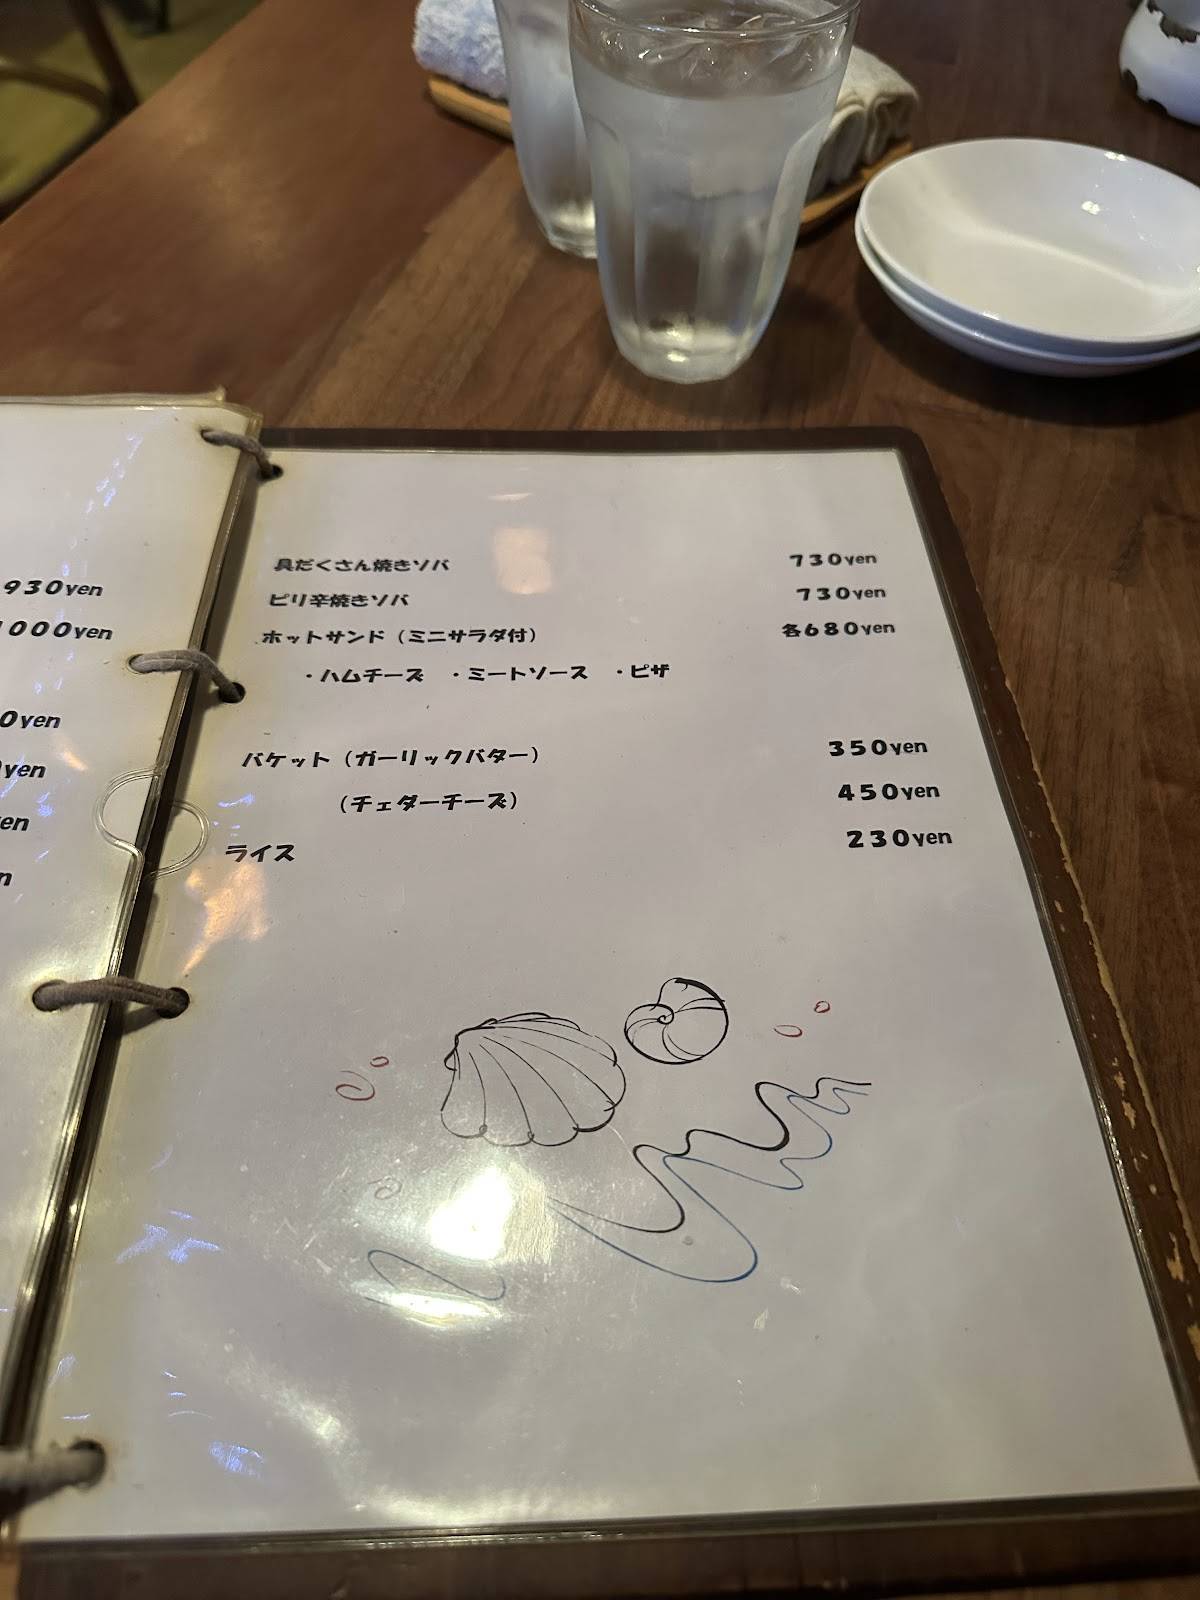 930yen
1000yen
0yen
yen
en
n
具だくさん焼きソバ 730yen
ピリ辛焼きソバ 730yen
ホットサンド（ミニサラダ付） 各680yen
・ハムチーズ ・ミートソース ・ピザ
バケット（ガーリックバター） 350yen
（チェダーチーズ） 450yen
ライス 230yen